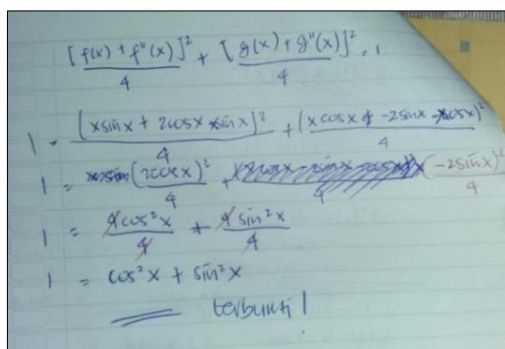 [f(x) + f"(x)]²/4 + [g(x) + g"(x)]²/4 = 1
1 = (x sin x + 2cos x - x sin x)²/4 + (x cos x - 2 sin x - x cos x)²/4
1 = (2cos x)²/4 + (-2 sin x)²/4
1 = 4cos²x/4 + 4 sin²x/4
1 = cos²x + sin²x
terbukti !